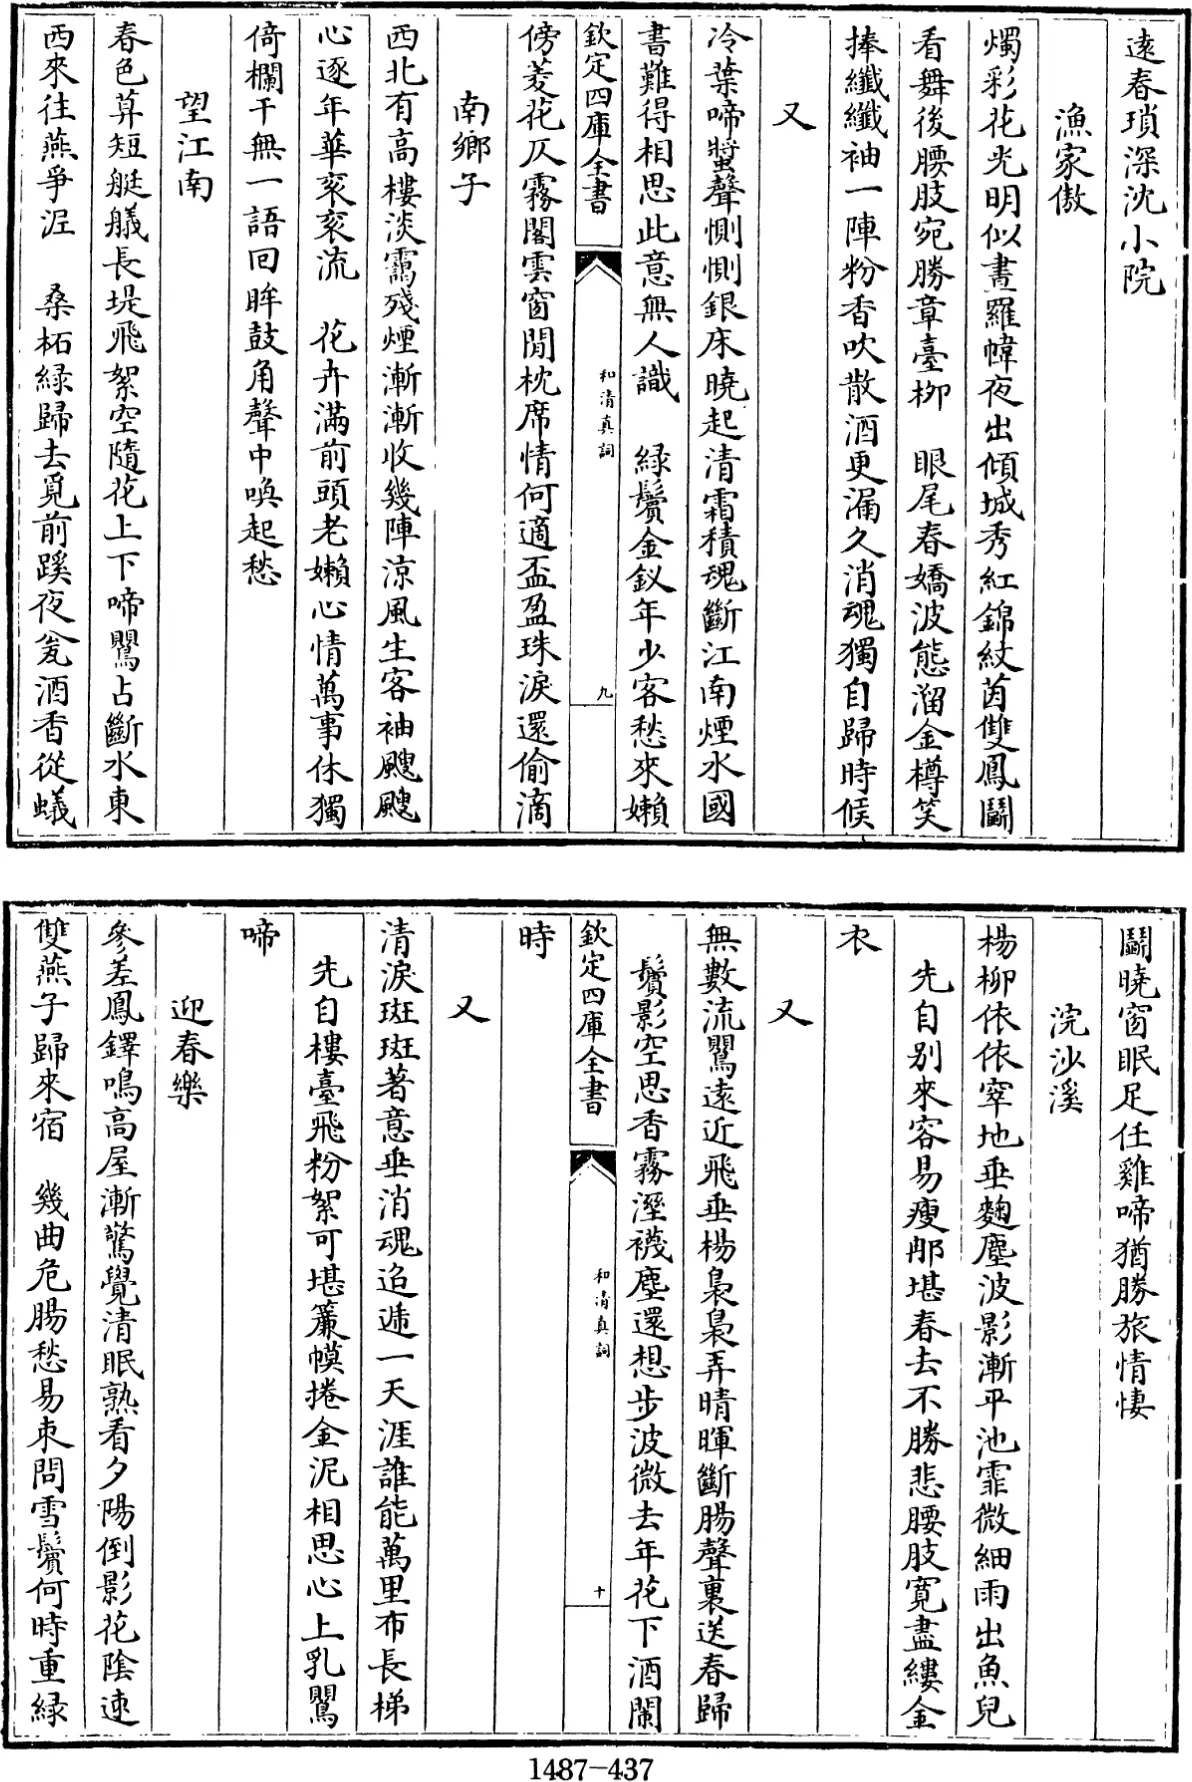 遠春瑣深沈小院
漁家傲
燭彩花光明似晝羅幃夜出傾城秀紅錦紋茵雙鳳鬭
看舞後腰肢宛勝章臺栁　眼尾春嬌波態溜金樽笑
捧纎纎袖一陣粉香吹散酒更漏久消魂獨自歸時候
又
冷葉啼螿聲惻惻銀床曉起清霜積魂斷江南煙水國
書難得相思此意無人識　緑鬢金釵年少客愁來嬾
欽定四庫全書
和清真詞
九
傍菱花仄霧閣雲窗閒枕席情何適盃盈珠淚還偷滴
南鄉子
西北有高樓淡靄殘煙漸漸收幾陣涼風生客袖颼颼
心逐年華衮衮流　花卉滿前頭老嬾心情萬事休獨
倚欄干無一語回眸鼓角聲中喚起愁
望江南
春色筭短艇艤長堤飛絮空隨花上下啼鸎占斷水東
西來往燕爭泥　桑柘緑歸去覓前蹊夜瓮酒香從蟻
鬭曉窗眠足任雞啼猶勝旅情悽
浣沙溪
楊栁依依窣地垂麴塵波影漸平池霏微細雨出魚兒
先自别來容易瘦那堪春去不勝悲腰肢寛盡縷金
衣
又
無數流鸎遠近飛垂楊裊裊弄晴暉斷腸聲裏送春歸
鬢影空思香霧溼襪塵還想步波微去年花下酒闌
欽定四庫全書
和清真詞
十
時
又
清淚斑斑著意垂消魂迢遞一天涯誰能萬里布長梯
先自樓臺飛粉絮可堪簾幙捲金泥相思心上乳鸎
啼
迎春樂
參差鳳鐸鳴高屋漸驚覺清眠熟看夕陽倒影花陰速
雙燕子歸來宿　幾曲危腸愁易束問雪鬢何時重緑
1487-437